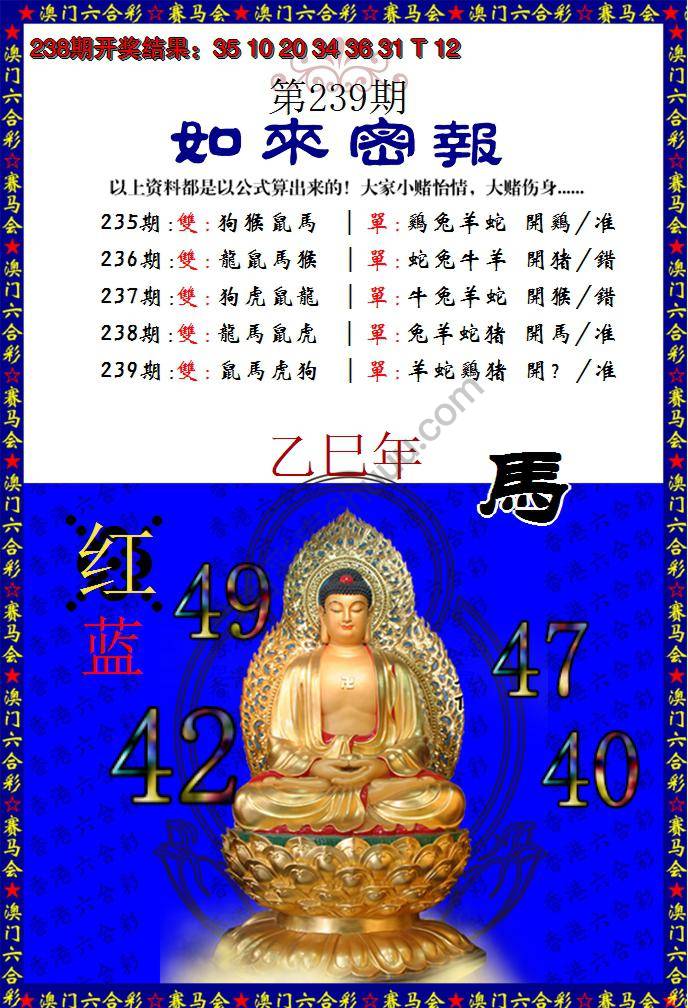 ★澳门六合彩☆赛马会★澳门六合彩☆赛马会★澳门六合彩☆赛马会★
238期开奖结果：35 10 20 34 36 31 T 12
第239期
如來密報
以上资料都是以公式算出来的！大家小赌怡情，大赌伤身......
235期:雙:狗猴鼠馬 | 單:鷄兔羊蛇 開鷄/准
236期:雙:龍鼠馬猴 | 單:蛇兔牛羊 開猪/錯
237期:雙:狗虎鼠龍 | 單:牛兔羊蛇 開猴/錯
238期:雙:龍馬鼠虎 | 單:兔羊蛇猪 開馬/准
239期:雙:鼠馬虎狗 | 單:羊蛇鷄猪 開?/准
乙巳年
馬
红
蓝
49
47
42
40
香港六合彩
★澳门六合彩☆赛马会★澳门六合彩☆赛马会★澳门六合彩☆赛马会★